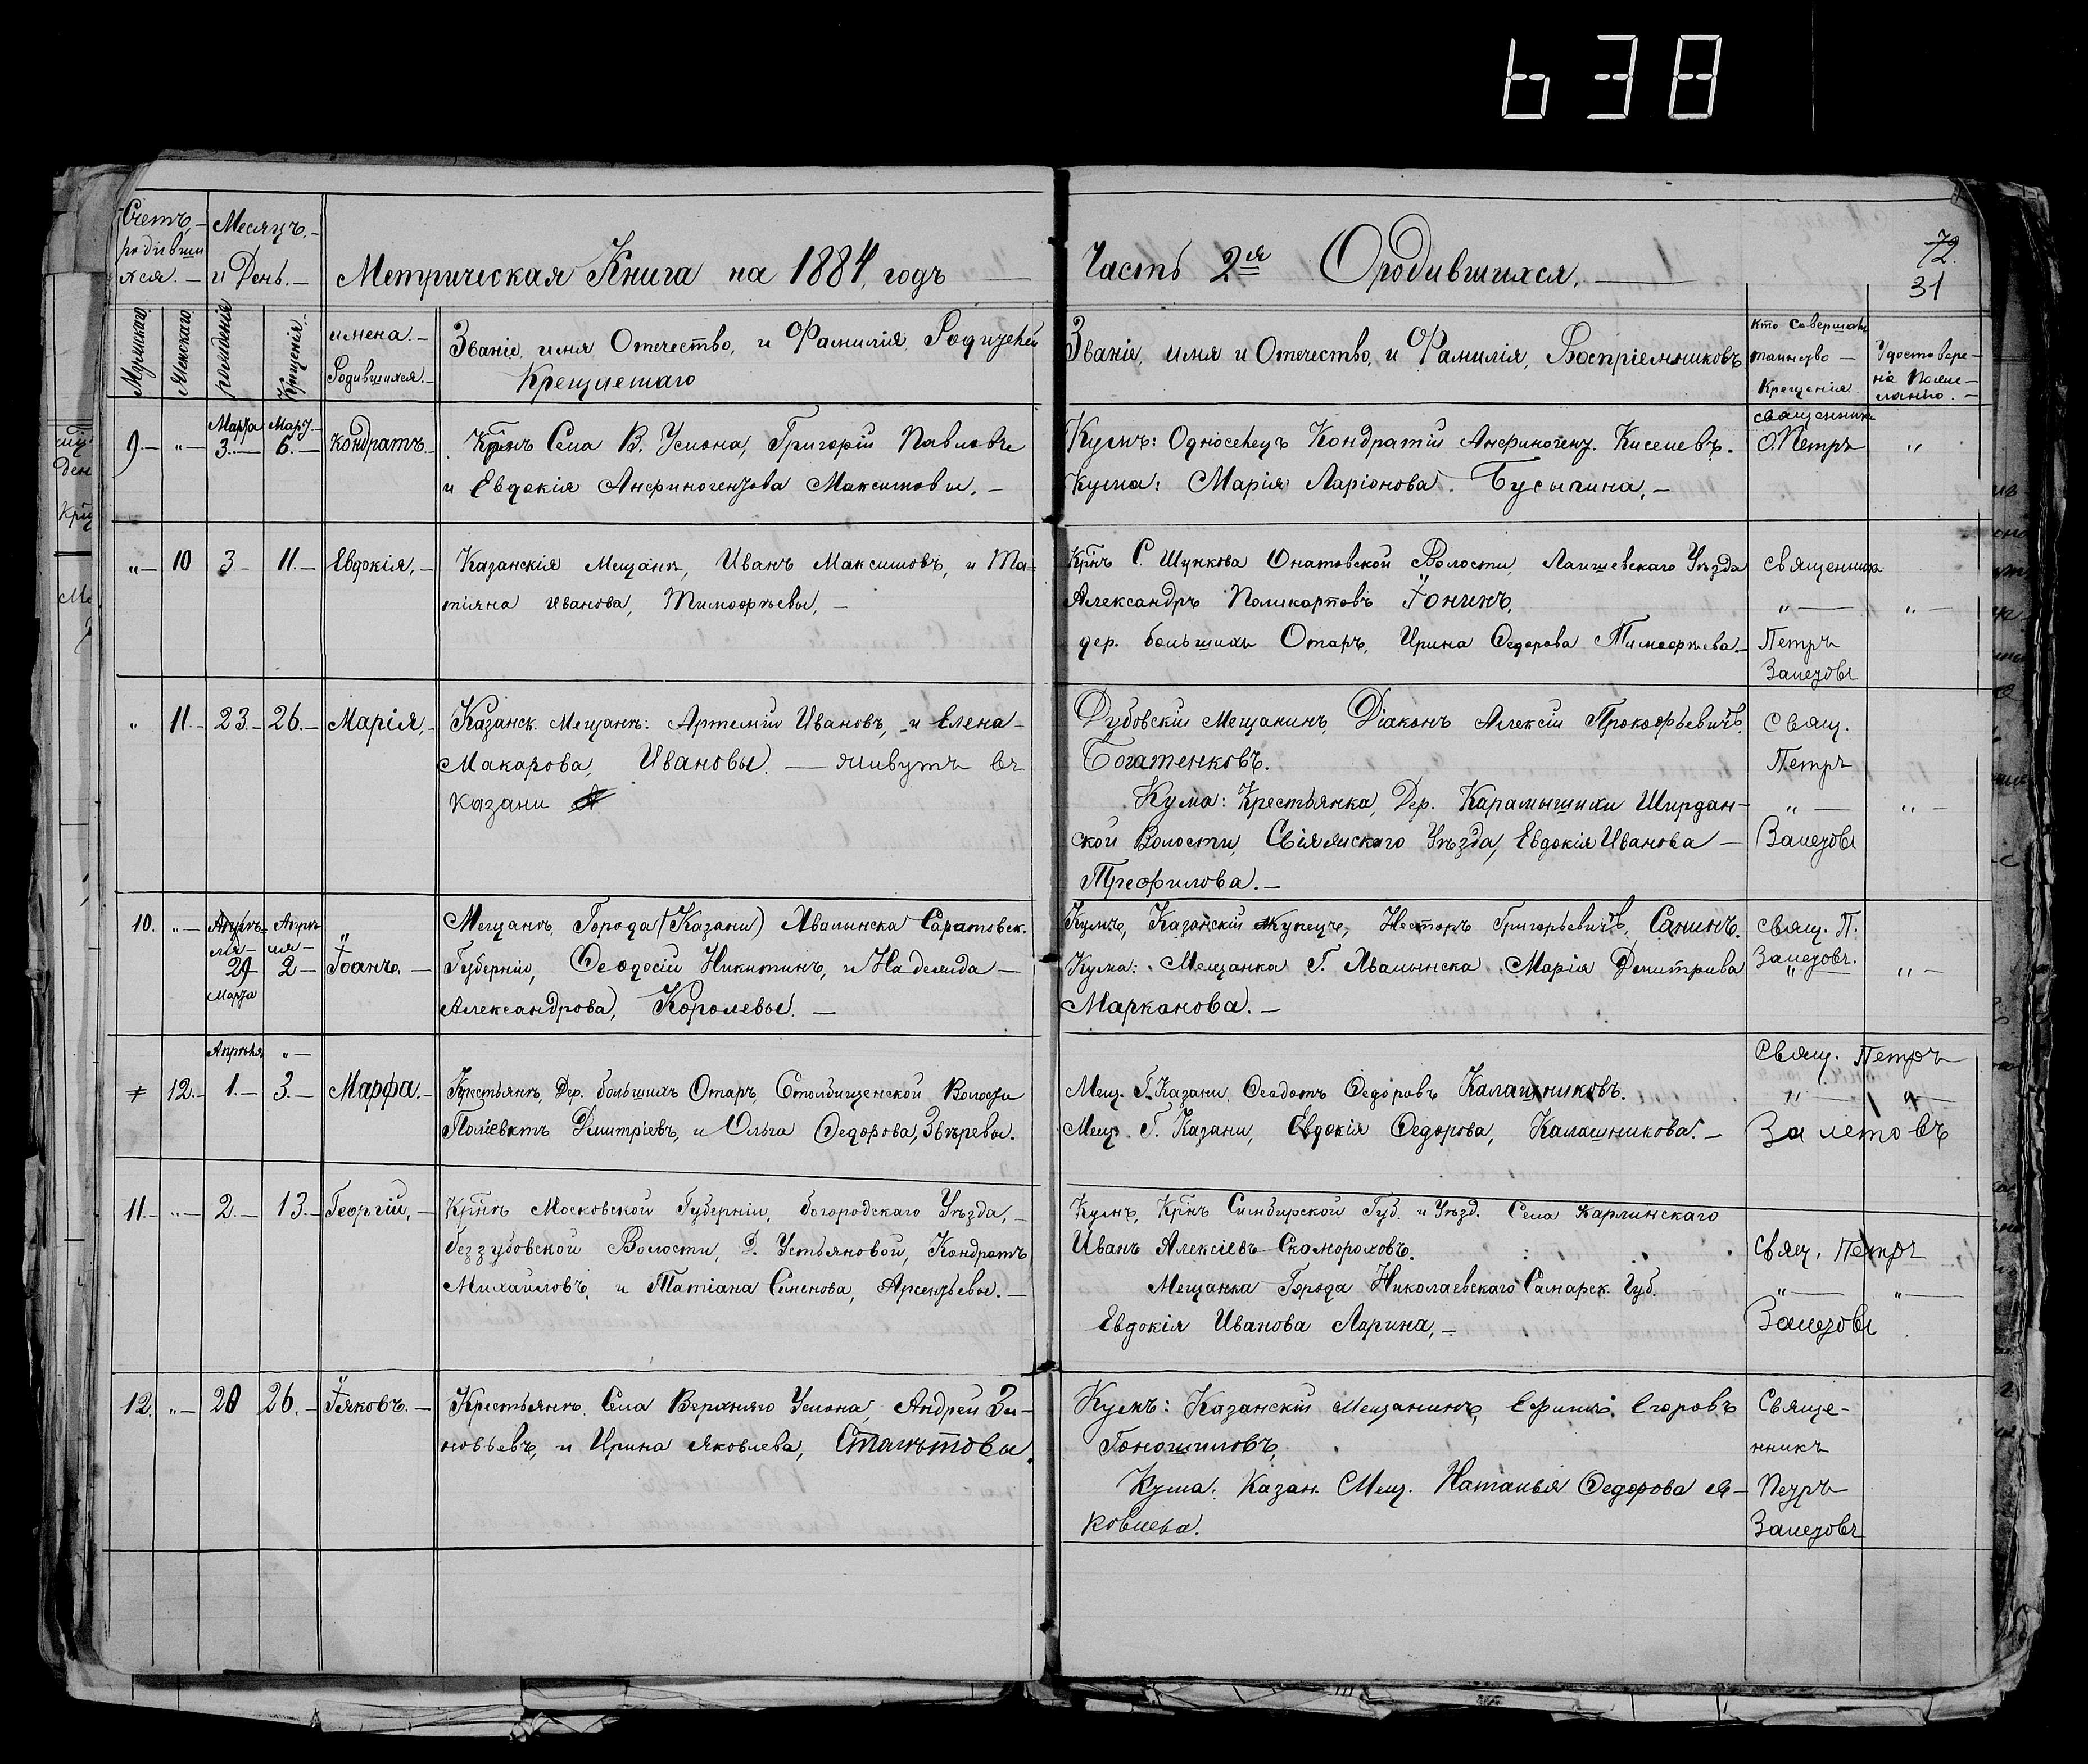 638
Счетъ,- Месяцъ.-
родивши
хся.- и День.- Метрическая Книга на 1884, годъ Часть 2я Ородившихся. 72.
31
Мужскаго Женскаго рожденія Крещенія.
имена.-
Родившихся.-
Званіе, имя Отечество, и Фамилія, Родителей
Крещаемаго
Званіе, имя и Отечество, и Фамилія, Воспріемниковъ
кто Совершалъ
таинство -
Крещенія
Удостовере-
ніе По
ланію.-
Марта Март.-
9.- "- 3.- 6.- Кондратъ.- Крнъ Села В. Услона, Григорій Павловъ
и Евдокія Анфиногентова Максимовы.-
Кумъ: Односелецъ Кондратій Анфиноген. Киселевъ.
Кума: Марія Ларіонова. Бусыгина.-
священникъ
О.Петръ "
"- 10 3- 11.- Евдокія,- Казанскія Мещане, Иванъ Максимовъ, и Та=
тіяна Иванова, Тимофѣевы,-
Крнъ С. Шункова Анатовской Волости, Лаишевскаго Уѣзда
Александръ Поликарповъ Іонинъ,
дер. большихъ Отаръ, Ирина Федорова Тимофѣева.-
Священникъ
"- "-
Петръ
Залетовъ
" 11.- 23.- 26.- Марія,- Казанск. Мещане: Артемій Ивановъ, и Елена-
Макарова, Ивановы. — живутъ въ
Казани
Дубовскій Мещанинъ, Діаконъ Алексій Прокофьевичъ,
Богатенковъ.
Кума: Крестьянка, Дер. Карамышихи Ширдан-
ской Волости, Свіяжскаго Уѣзда, Евдокія Иванова-
Трефилова.-
Свящ.
Петръ
"- "-
Залетовъ
10. "- Апрѣ- Апрѣ
ля- ля-
29 2- Іоанъ.-
Марта
Мещане, Города (Казани) Хвалынска Саратовск.
Губерніи, Феодосій Никитинъ, и Надежда-
Александрова, Королевы.-
Кумъ, Казанскій Купецъ, Несторъ Григорьевичъ, Санинъ.
Кума: Мещанка Г. Хвалынска Марія Дмитрива
Марканова.-
Свящ. П.
Залетовъ. "-
Апрѣля "-
12.- 1.- 3.- Марфа.- Крестьяне, Дер. большихъ Отаръ, Столбищенской Волости
Поліевктъ Дмитріевъ, и Ольга Федорова, Звѣревы.
Мещ. Г. Казани, Феодотъ Федоровъ Калашниковъ.
Мещ. Г. Казани, Евдокія Федорова, Калашникова.-
Свящ. Петръ
"-
Залетовъ
11.- "- 2.- 13.- Георгій,- Крне Московской Губерніи, богородскаго Уѣзда,-
беззубовской Волости, Д. Устьяновой, Кондратъ
Михайловъ, и Татіана Сименова, Арсентьевы.-
Кумъ, Крнъ Симбирской Губ. и Уѣзд. Села Карлинскаго
Иванъ Алексіевъ Скомороховъ.
Мещанка Города Николаевскаго Самарск. Губ.
Евдокія Иванова Ларина,-
Свящ. Петръ
"- "-
Залетовъ
12. "- 20 26.- Іяковъ.- Крестьяне, Села Верхняго Услона, Андрей Зи-
новьевъ, и Ирина Яковлева,
Кумъ: Казанскій Мещанинъ, Ефимъ Егоровъ
Гоношиловъ,
Кума: Казан. Мещ. Наталья Федорова Я-
ковлева.
Свяще-
нникъ
Петръ
Залетовъ